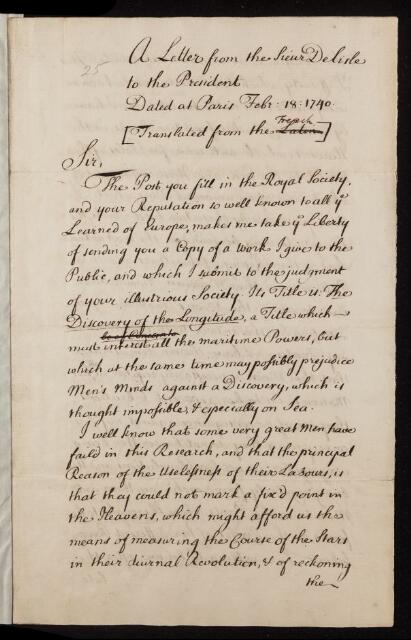 25
A Letter from the Sieur Delisle
to the President
Dated at Paris Febr: 18: 1740.
French
[Translated from the Laten]
Sir,
The Post you fill in the Royal Society,
and your Reputation so well known to all yᵉ
Learned of Europe, makes me take yᵉ Liberty
of sending you a Copy of a Work I give to the
Public, and which I submit to the judgment
of your illustrious Society. Its Title is: The
Discovery of the Longitude, a Title which
must interest all the maritime Powers, but
which at the same time may possibly prejudice
Men's Minds against a Discovery, which is
thought impossible, & especially on Sea.
I well know that some very great Men have
faild in this Research, and that the principal
Reason of the Uselessness of their Labours, is
that they could not mark a fix'd point in
the Heavens, which might afford us the
means of measuring the Course of the Stars
in their diurnal Revolution, & of reckoning
the